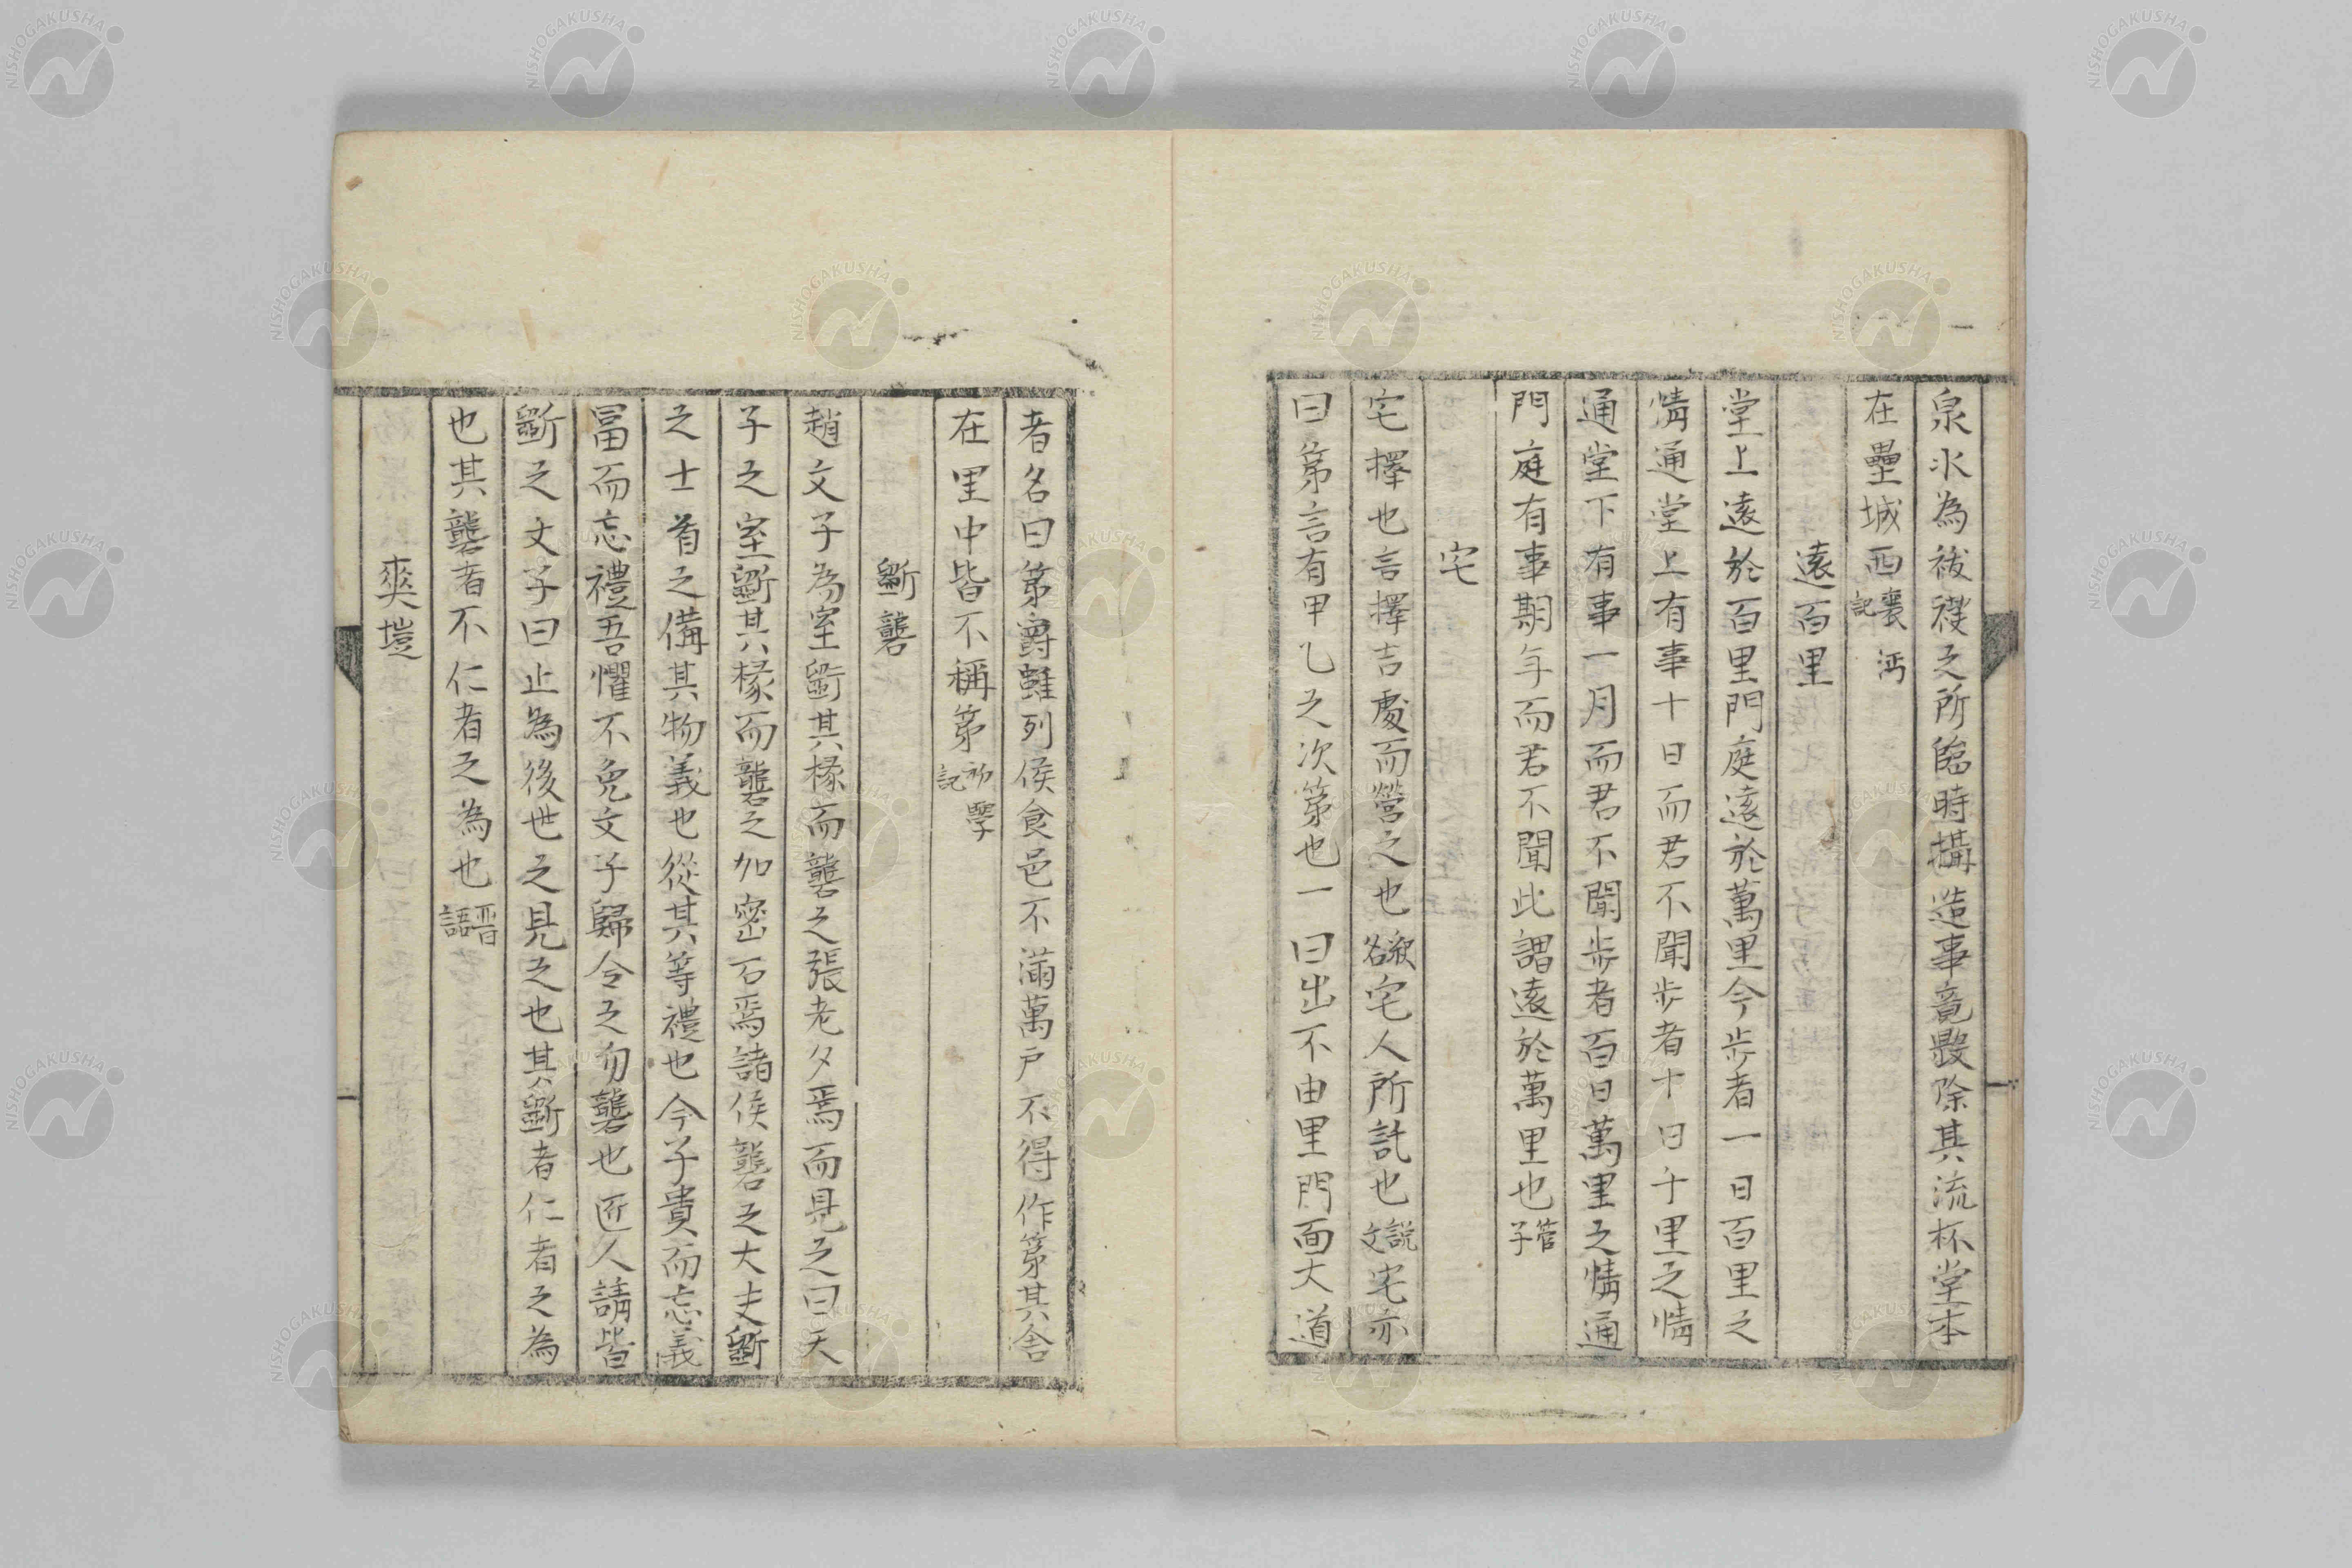 泉水為祓禊之所臨時搆造事竟毀除其流杯堂本
在壘城西襄沔記
遠百里
堂上遠於百里門庭遠於萬里今步者一日百里之
情通堂上有事十日而君不聞步者十日千里之情
通堂下有事一月而君不聞步者百日萬里之情通
門庭有事期年而君不聞此謂遠於萬里也管子
宅
宅擇也言擇吉處而營之也宅人所託也說文宅亦
曰第言有甲乙之次第也一曰出不由里門面大道
者名曰第爵雖列侯食邑不滿萬戶不得作第其舍
在里中皆不稱第初學記
斲礱
趙文子為室斲其椽而礱之張老夕焉而見之曰天
子之室斲其椽而礱之加密石焉諸侯礱之大夫斲
之士首之備其物義也從其等禮也今子貴而忘義
冨而忘禮吾懼不免文子歸令之勿礱也匠人請皆
斲之文子曰止為後世之見之也其斲者仁者之為
也其礱者不仁者之為也晋語
爽塏
NISHOGAKUSHA